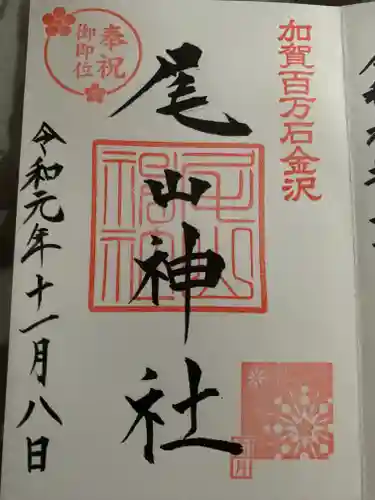 加賀百万石金沢
奉祝
御即位
尾山神社
令和元年十一月八日